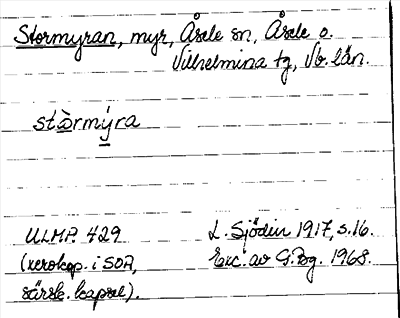 Stormyran, myr, Åsele sn, Åsele o.
Vilhelmina tg, Vb. län.
stò̱rmý̱ra
ULMA 429
(xerokop. i SOA,
särsk. kapsel).
L. Sjödin 1917, s. 16.
Exc. av G. Bg. 1968.